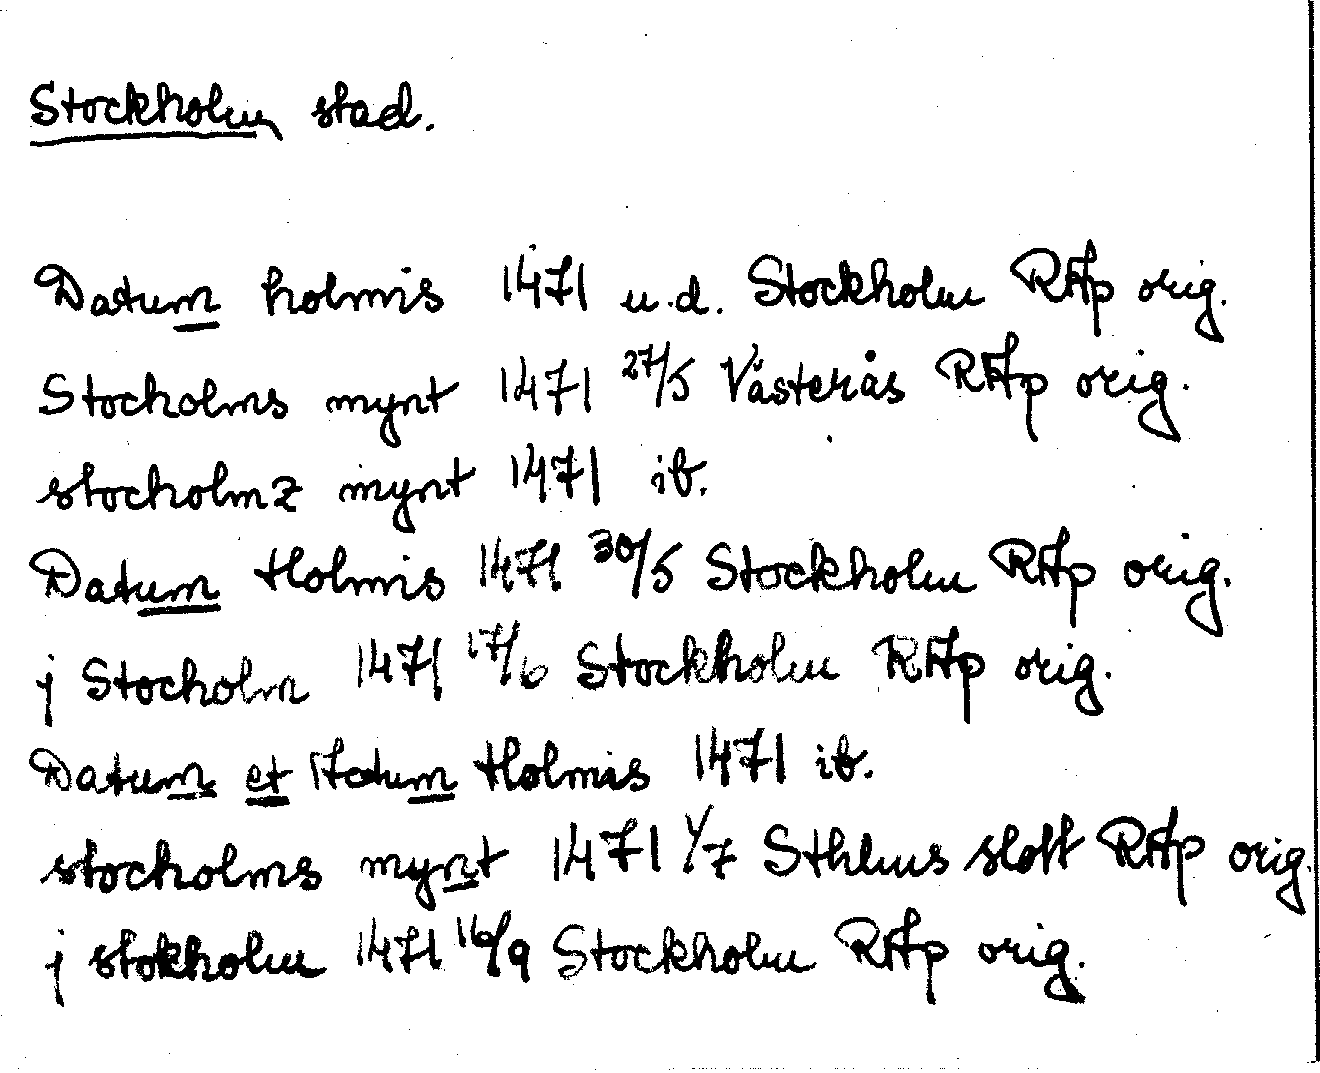 Stockholm stad.
Datum holmis 1471 u.d. Stockholm RAp orig.
Stocholms mynt 1471 27/5 Västerås RAp orig.
stocholmz mynt 1471 ib.
Datum Holmis 1471 30/5 Stockholm RAp orig.
j Stocholm 1471 17/6 Stockholm RAp orig.
Datum et Actum Holmis 1471 ib.
stocholms mynt 1471 1/7 Sthlms slott RAp orig.
j stokholm 1471 16/9 Stockholm RAp orig.